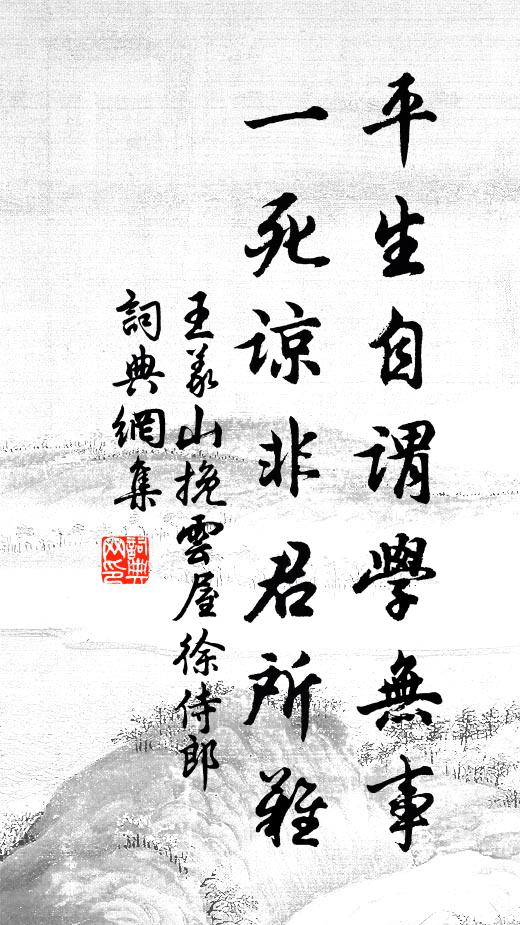 平生自謂學無事
一死諒非君所難
王義山挽雲屋徐侍郎
詞典網集
詞典網印